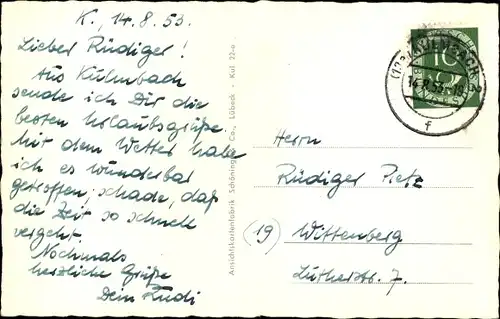 K., 14.8.53.
Lieber Rüdiger!
Aus Kulmbach
sende ich Dir die
besten Urlaubsgrüße.
Mit dem Wetter habe
ich es wunderbar
getroffen; schade, daß
die Zeit so schnell
vergeht.
Nochmals
herzliche Grüße
Dein Rudi
Ansichtskartenfabrik Schöning & Co., Lübeck • Kul 22
Herrn
Rüdiger Pietz
(19) Wittenberg
Lutherstr. 7.
(13a) KULMBACH 2
14.8.53.-19
f
10